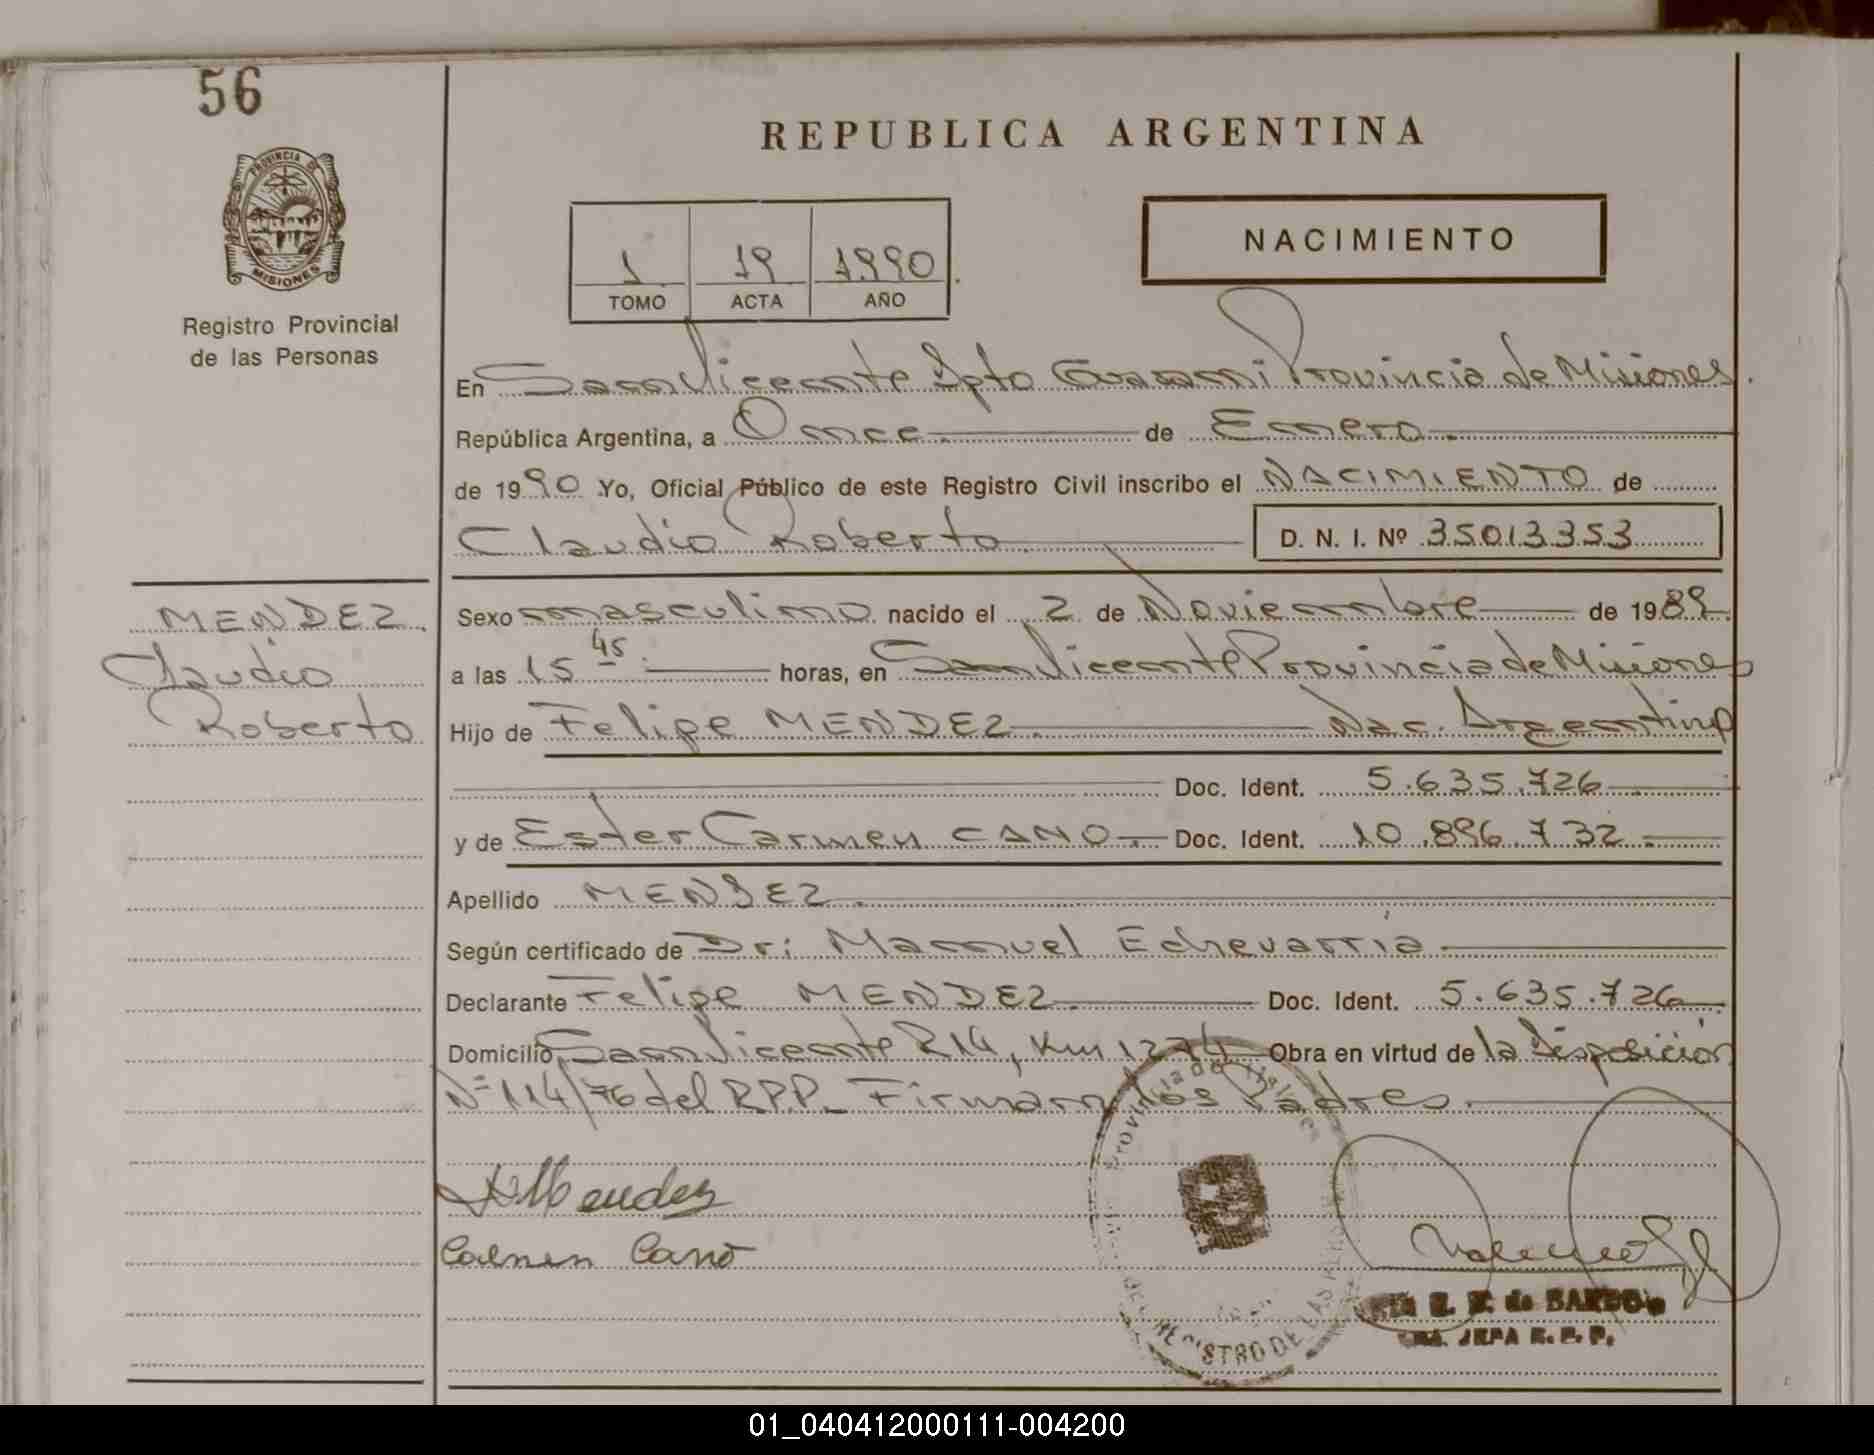 56
PROVINCIA DE
MISIONES
Registro Provincial
de las Personas
REPUBLICA ARGENTINA
1 19 1990
TOMO ACTA AÑO
NACIMIENTO
En San Vicente Dpto Guarani Provincia de Misiones
República Argentina, a Once de Enero
de 1990 Yo, Oficial Público de este Registro Civil inscribo el NACIMIENTO de
Claudio Roberto D. N. I. Nº 35013353
MENDEZ
Claudio
Roberto
Sexo masculino nacido el 2 de Noviembre de 1989
a las 15 45 horas, en San Vicente Provincia de Misiones
Hijo de Felipe MENDEZ Nac. Argentino
Doc. Ident. 5.635.726
y de Ester Carmen CANO Doc. Ident. 10.896.732
Apellido MENDEZ
Según certificado de Dr: Manuel Echevarria
Declarante Felipe MENDEZ Doc. Ident. 5.635.726
Domicilio San Vicente R14, Km 1274 Obra en virtud de la Disposición
Nº 114/76 del R.P.P. Firman los Padres.
Mendez
Carmen Cano
Provincia de Misiones
REGISTRO DE LAS
JEFA R. P. P.
01_040412000111-004200